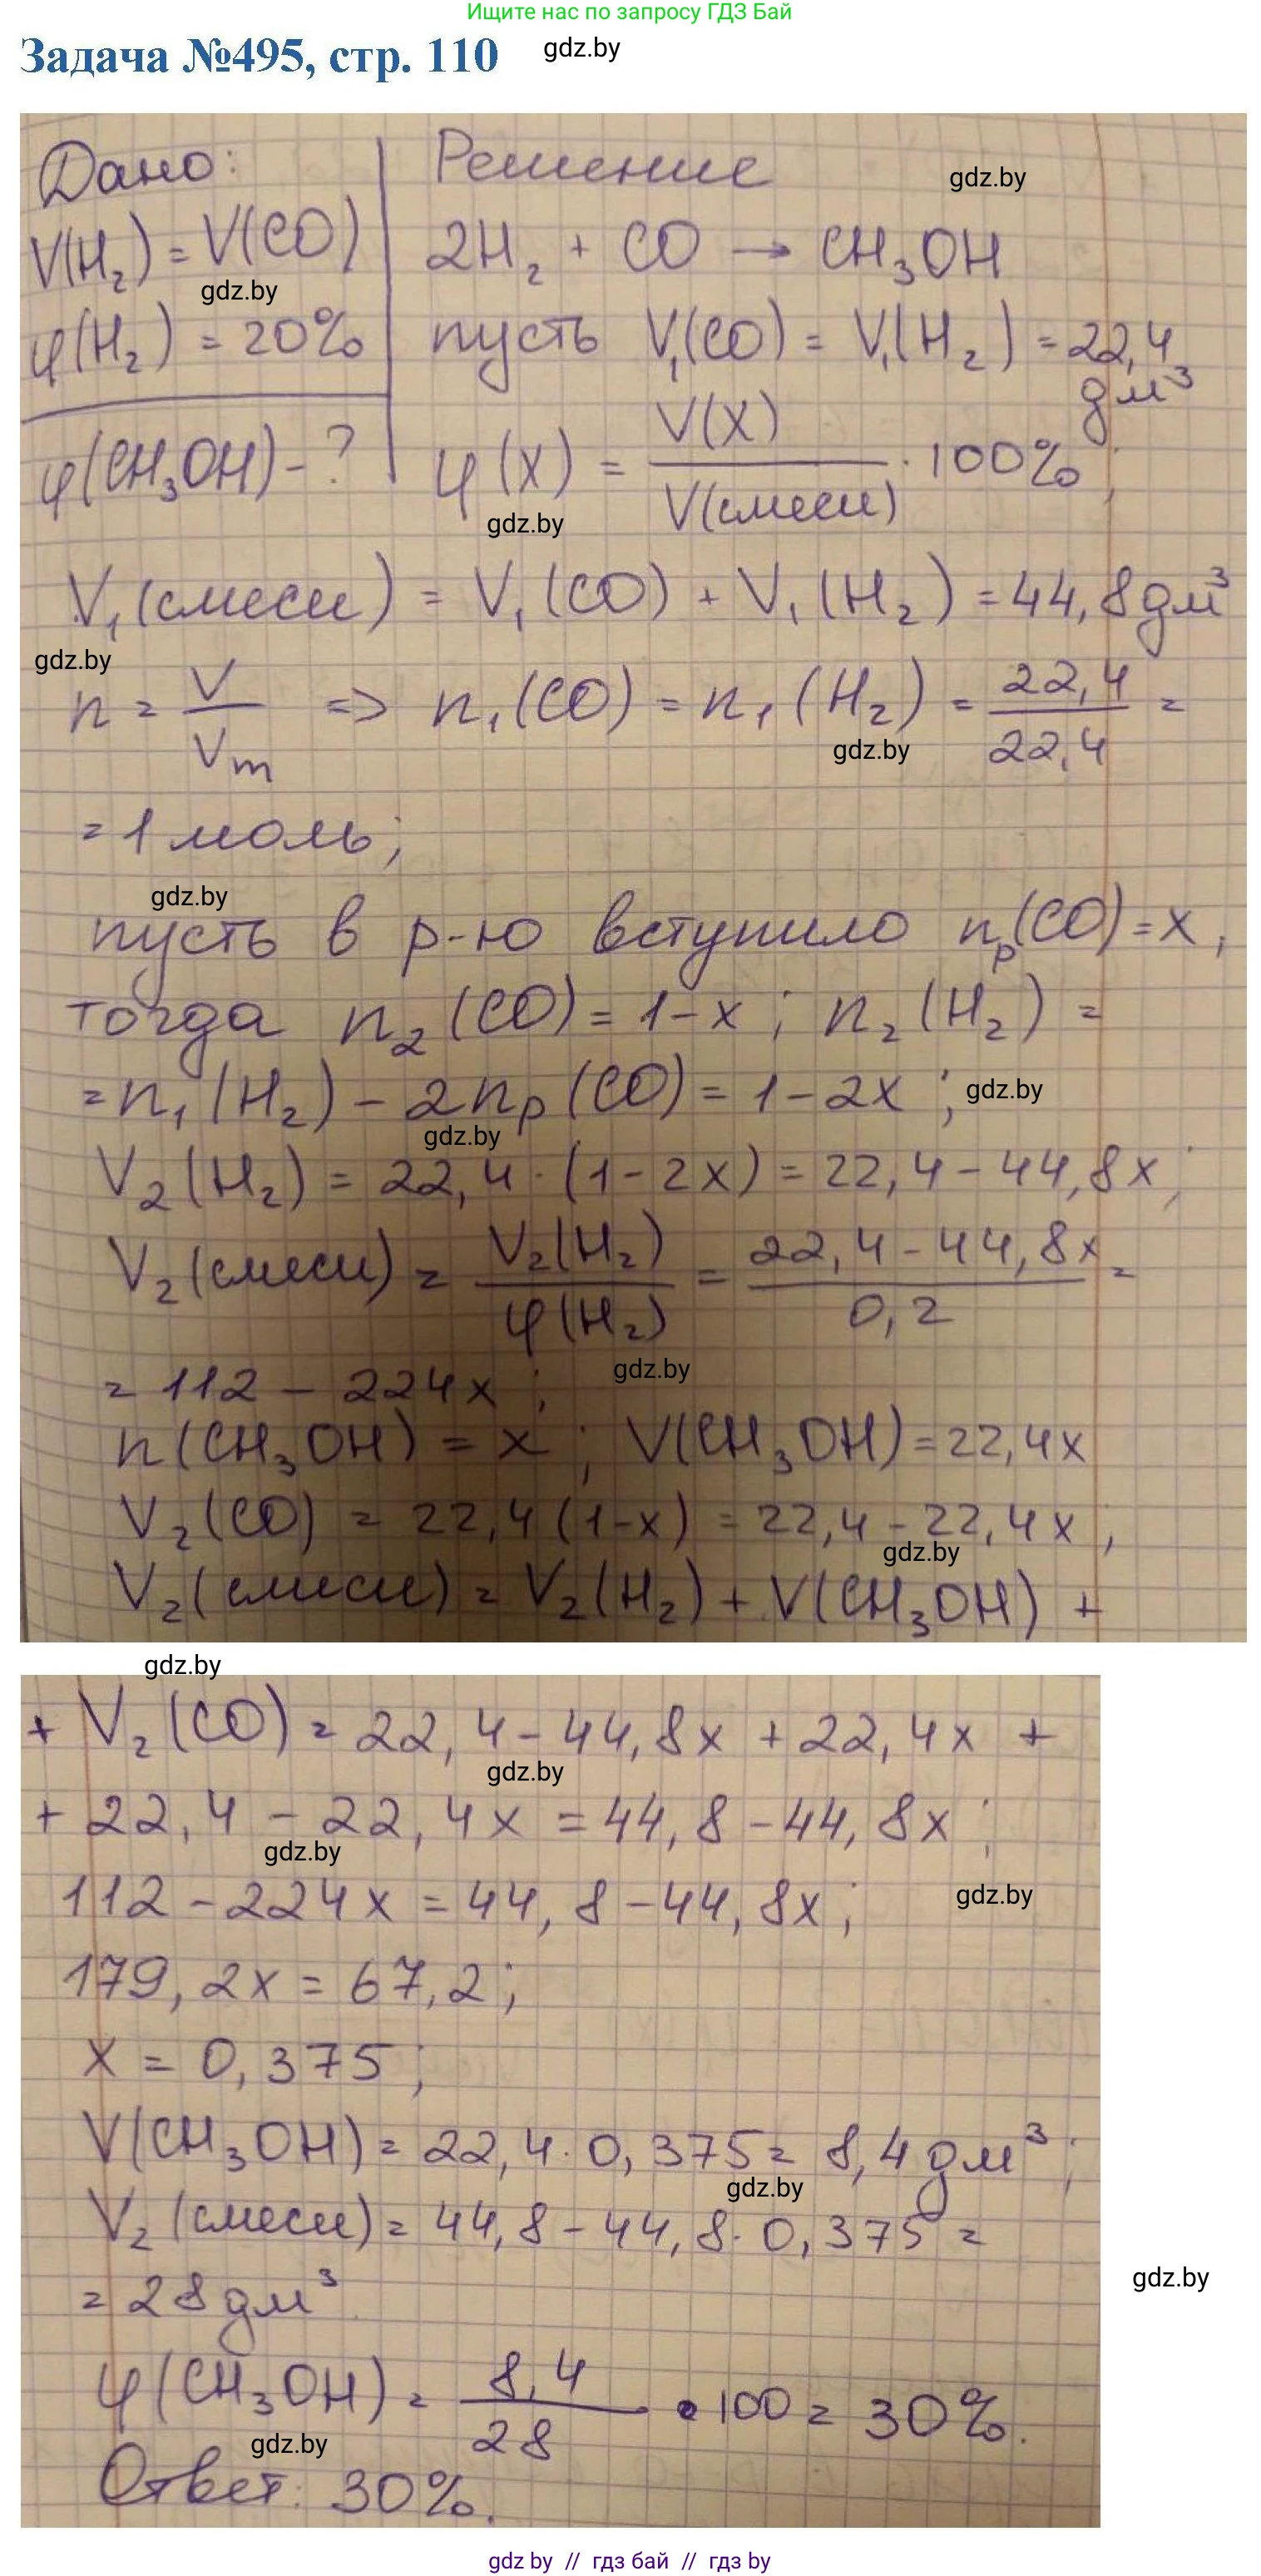 Ищите нас по запросу ГДЗ Бай
Задача №495, стр. 110 gdz.by
Дано: Решение gdz.by
V(H₂) = V(CO) 2H₂ + CO → CH₃OH
gdz.by
φ(H₂) = 20% пусть V₁(CO) = V₁(H₂) = 22,4 дм³
φ(CH₃OH) - ? φ(x) = V(x) / V(смеси) · 100%;
gdz.by
V₁(смеси) = V₁(CO) + V₁(H₂) = 44,8 дм³
gdz.by
n = V / Vm => n₁(CO) = n₁(H₂) = 22,4 / 22,4 =
gdz.by
= 1 моль;
gdz.by
пусть в р-ю вступило nр(CO) = x,
тогда n₂(CO) = 1 - x; n₂(H₂) =
= n₁(H₂) - 2nр(CO) = 1 - 2x; gdz.by
gdz.by
V₂(H₂) = 22,4 · (1 - 2x) = 22,4 - 44,8x;
V₂(смеси) = V₂(H₂) / φ(H₂) = 22,4 - 44,8x / 0,2 =
gdz.by
= 112 - 224x;
n(CH₃OH) = x; V(CH₃OH) = 22,4x
V₂(CO) = 22,4(1-x) = 22,4 - 22,4x;
gdz.by
V₂(смеси) = V₂(H₂) + V(CH₃OH) +
gdz.by
+ V₂(CO) = 22,4 - 44,8x + 22,4x +
gdz.by
+ 22,4 - 22,4x = 44,8 - 44,8x;
gdz.by
112 - 224x = 44,8 - 44,8x; gdz.by
179,2x = 67,2;
x = 0,375;
V(CH₃OH) = 22,4 · 0,375 = 8,4 дм³;
gdz.by
V₂(смеси) = 44,8 - 44,8 · 0,375 =
= 28 дм³ gdz.by
φ(CH₃OH) = 8,4 / 28 · 100 = 30%.
gdz.by
Ответ: 30%.
gdz by // гдз бай // гдз by